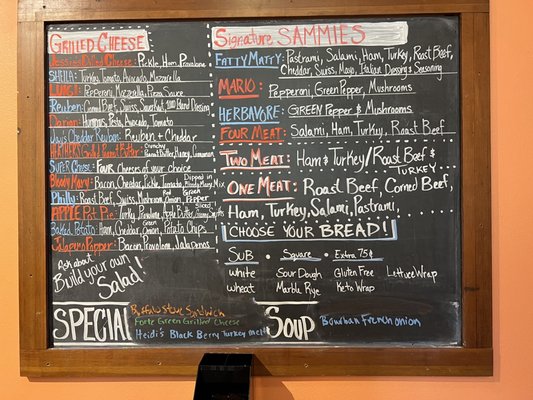 GRILLED CHEESE
Jessica's Dilled Cheese: Pickle, Ham, Provolone
SHEILA: Turkey, Tomato, Avocado, Mozzarella
LUIGI: Pepperoni, Mozzarella, Pizza Sauce
Reuben: Corned Beef, Swiss, Sauerkraut, 1000 Island Dressing
Dorian: Hummus, Pesto, Avocado, Tomato
Jay's Cheddar Reuben: Reuben + Cheddar
Peanut Butter, Honey, Cinnamon
SUPER Cheese: FOUR Cheeses of your Choice
Bloody Mary: Bacon, Cheddar, Pickle, Tomato, Dipped in Bloody Mary Mix
Philly: Roast Beef, Swiss, Mushroom, Onion, Green Pepper
APPLE Pot Pie: Turkey, Provolone, Apple Butter, Sliced Granny Smiths
Baked Potato: Ham, Cheddar, Green Onion, Potato Chips
Jalapeno Popper: Bacon, Provolone, Jalapenos
Ask about
Build your own
Salad!
SPECIAL
Buffalo Stuve Sandwich
Forte Green Grilled Cheese
Heidi's Black Berry Turkey melt
Signature SAMMIES
FATTY MATTY: Pastrami, Salami, Ham, Turkey, Roast Beef,
Cheddar, Swiss, Mayo, Italian Dressing & Seasoning
MARIO: Pepperoni, Green Pepper, Mushrooms
HERBAVORE: GREEN Pepper & Mushrooms
FOUR MEAT: Salami, Ham, Turkey, Roast Beef
TWO MEAT: Ham & Turkey/Roast Beef &
TURKEY
ONE MEAT: Roast Beef, Corned Beef,
Ham, Turkey, Salami, Pastrami,
CHOOSE YOUR BREAD!
SUB • Square • Extra 75¢
white Sour Dough Gluten Free Lettuce Wrap
wheat Marble Rye Keto Wrap
SOUP
Bourbon French onion